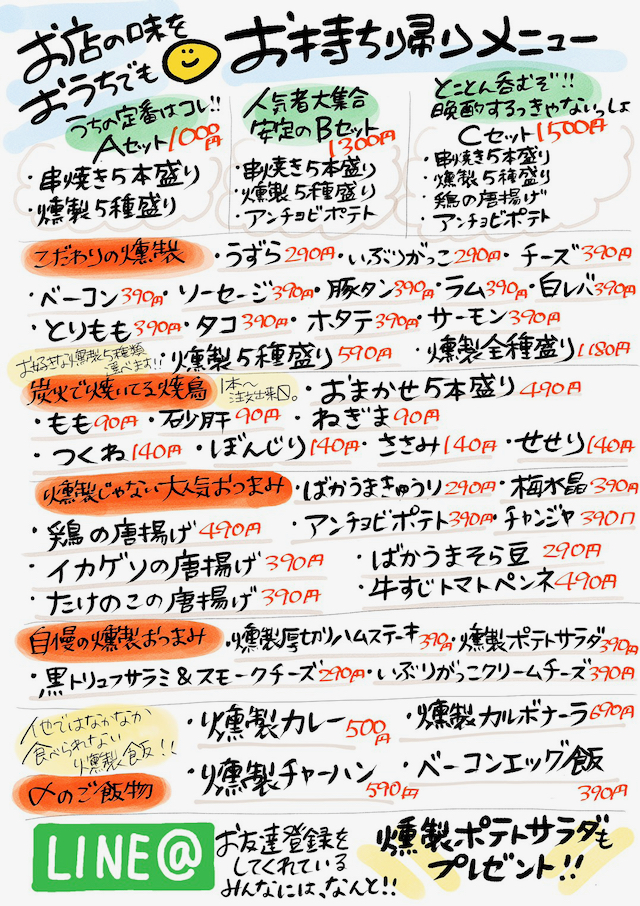 お店の味を
おうちでも
お持ち帰りメニュー
うちの定番はコレ!!
Aセット1000円
・串焼き5本盛り
・燻製5種盛り
人気者大集合
安定のBセット
1300円
・串焼き5本盛り
・燻製5種盛り
・アンチョビポテト
とことん呑むぞ!!
晩酌するっきゃないっしょ
Cセット1500円
・串焼き5本盛り
・燻製5種盛り
・鶏の唐揚げ
・アンチョビポテト
こだわりの燻製 ・うずら290円・いぶりがっこ290円・チーズ390円
・ベーコン390円・ソーセージ390円・豚タン390円・ラム390円・白レバ390円
・とりもも390円・タコ390円・ホタテ390円・サーモン390円
お好きな燻製5種類
選べます!!
・燻製5種盛り590円 ・燻製全種盛り1180円
炭火で焼いてる焼鳥 1本〜
注文出来〼。
・おまかせ5本盛り490円
・もも90円・砂肝90円・ねぎま90円
・つくね140円・ぼんじり140円・ささみ140円・せせり140円
燻製じゃない大人気おつまみ・ばかうまきゅうり290円・梅水晶390円
・鶏の唐揚げ490円 ・アンチョビポテト390円・チャンジャ390円
・イカゲソの唐揚げ390円 ・ばかうまそら豆290円
・たけのこの唐揚げ390円 ・牛すじトマトペンネ490円
自慢の燻製おつまみ・燻製厚切りハムステーキ390円・燻製ポテトサラダ390円
・黒トリュフサラミ&スモークチーズ290円・いぶりがっこクリームチーズ390円
他ではなかなか
食べられない
燻製飯!!
〆のご飯物
・燻製カレー500円 ・燻製カルボナーラ690円
・燻製チャーハン590円 ・ベーコンエッグ飯390円
LINE@
お友達登録を
してくれている
みんなには、なんと!!
燻製ポテトサラダも
プレゼント!!